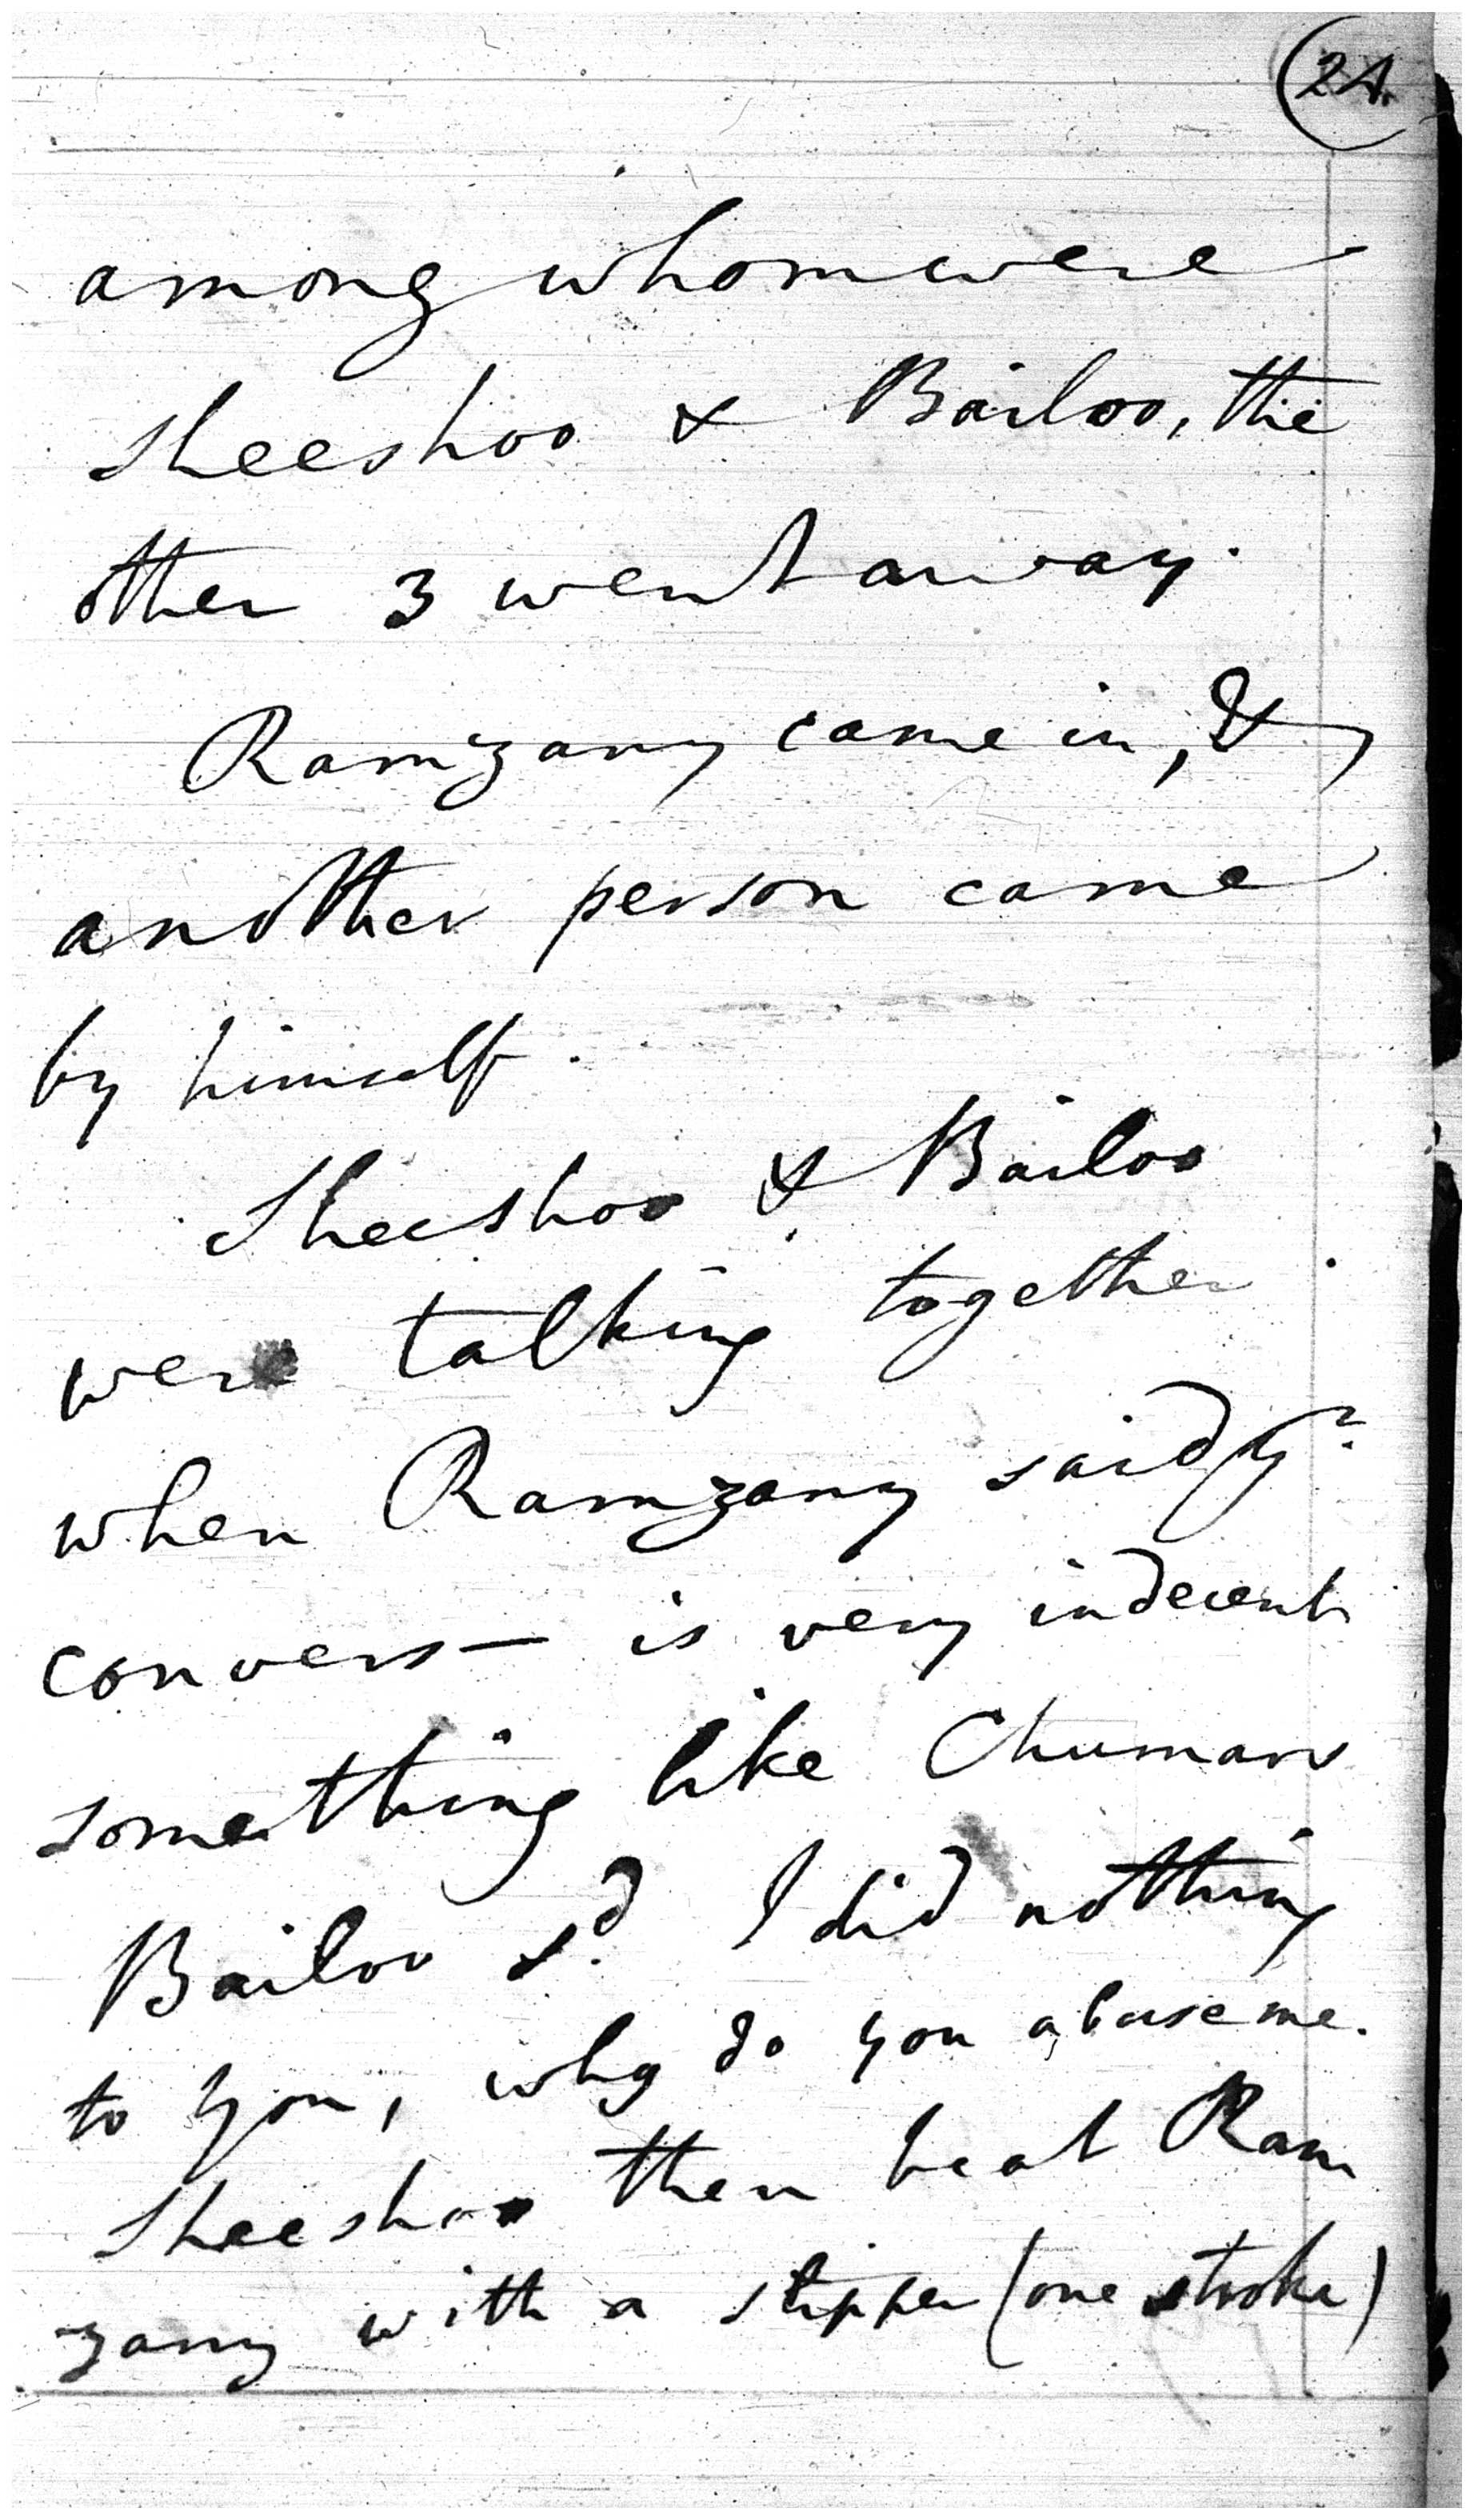 24.
among whom were
Sheeshoo & Bailoo, the
other 3 went away.
Ramzany came in, &
another person came
by himself.
Sheeshoo & Bailoo
were talking together
when Ramzany said yr.
convers— is very indecent
something like Chumars
Bailoo sd. I did nothing
to you, why do you abuse me.
Sheeshoo then beat Ram
zany with a slipper (one stroke)